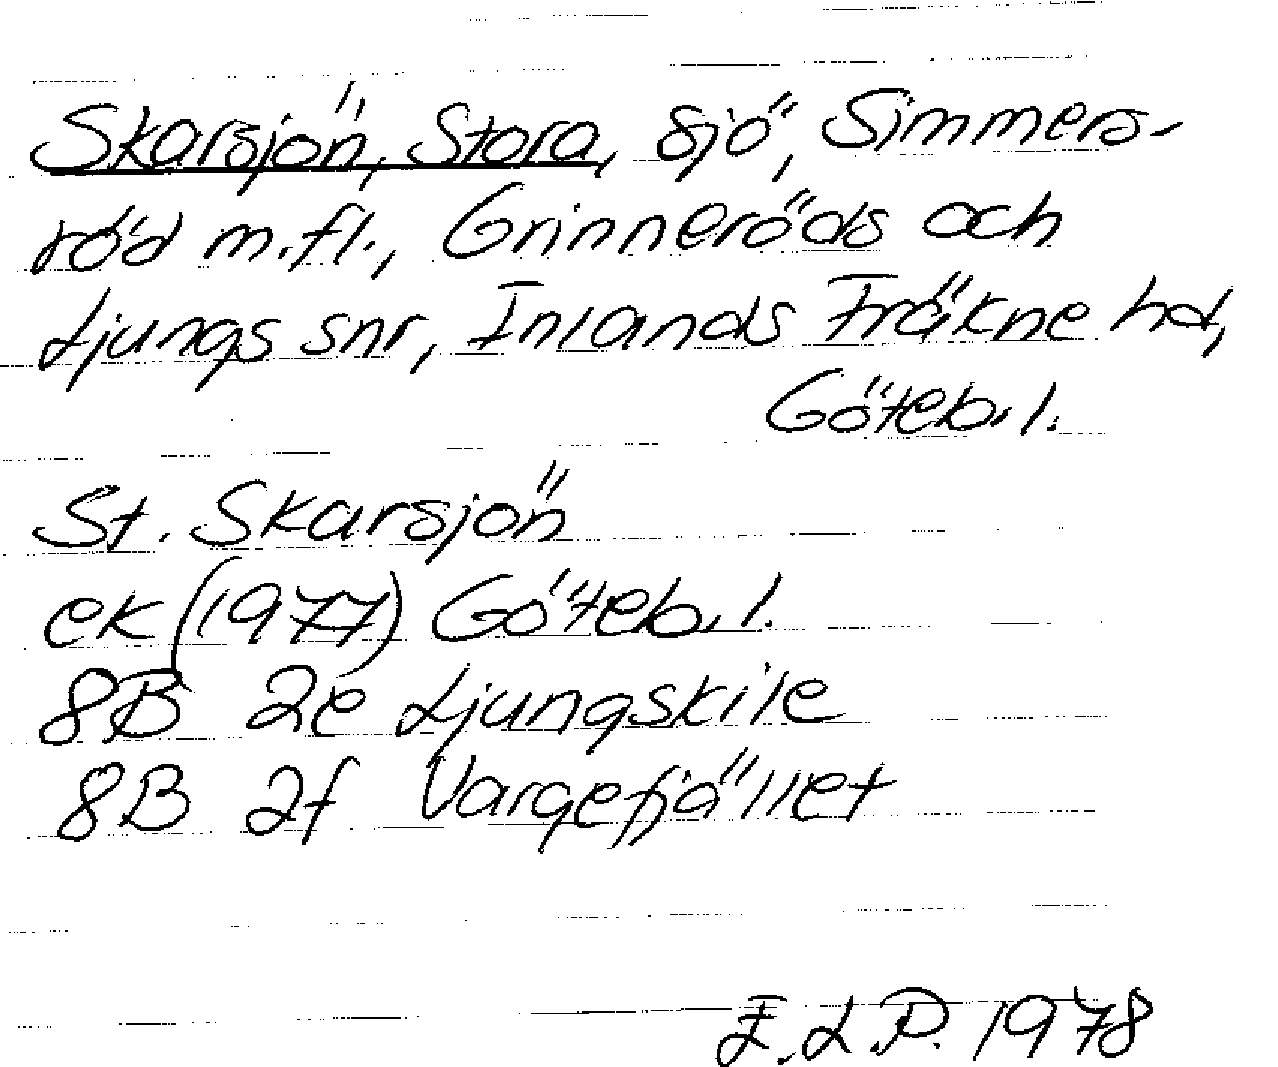 Skarsjön, Stora, sjö, Simmers-
röd m.fl., Grinneröds och
Ljungs snr, Inlands Fräkne hd,
Göteb. l.
St. Skarsjön
ek (1977) Göteb. l.
8B 2e Ljungskile
8B 2f Vargefjället
E.L.P. 1978